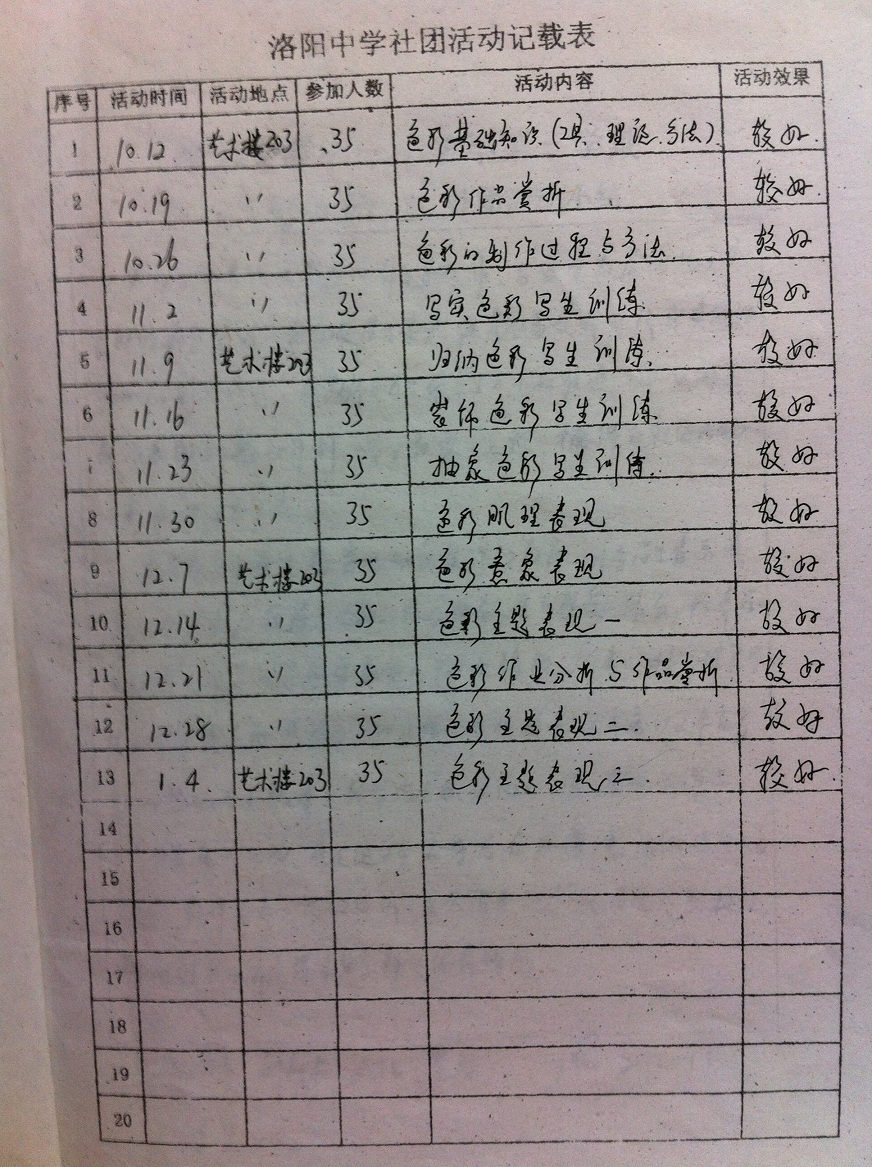 洛阳中学社团活动记载表
序号 活动时间 活动地点 参加人数 活动内容 活动效果
1 10.12 艺术楼203 35 色彩基础知识(工具、理论、方法) 较好.
2 10.19 〃 35 色彩作品赏析 较好.
3 10.26 〃 35 色彩的制作过程与方法. 较好
4 11.2 〃 35 写实色彩写生训练. 较好
5 11.9 艺术楼203 35 归纳色彩写生训练. 较好
6 11.16 〃 35 装饰色彩写生训练. 较好
7 11.23 〃 35 抽象色彩写生训练. 较好
8 11.30 〃 35 色彩肌理表现 较好
9 12.7 艺术楼203 35 色彩意象表现 较好
10 12.14 〃 35 色彩主题表现一 较好
11 12.21 〃 35 色彩作业分析与作品赏析 较好
12 12.28 〃 35 色彩主题表现二. 较好
13 1.4. 艺术楼203 35 色彩主题表现三. 较好.
14
15
16
17
18
19
20